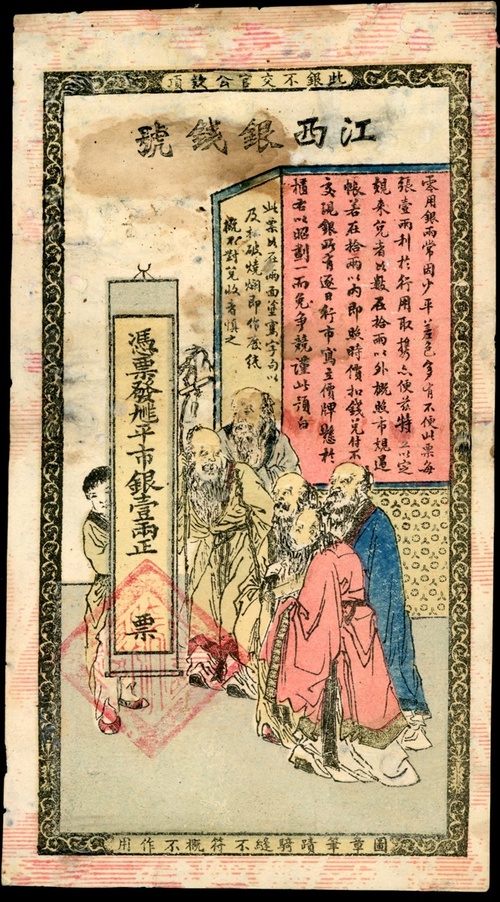 此銀不交官公款項
江西銀錢號
零用銀兩常因少平差色多有不便此票每
張壹兩利於行用取攜亦便茲特定
規來兌者此數在拾兩以外概照市規過
帳若在拾兩以內即照時價扣錢兌付不
支現銀所有逐日行市寫立價牌懸於
櫃右以昭劃一而免爭競謹此預白
此票如在兩面塗寫字句以
及扯破燒爛即作廢紙
概不對兌收者慎之
憑票發平市銀壹兩正
票
圖章筆蹟騎縫不符概不作用